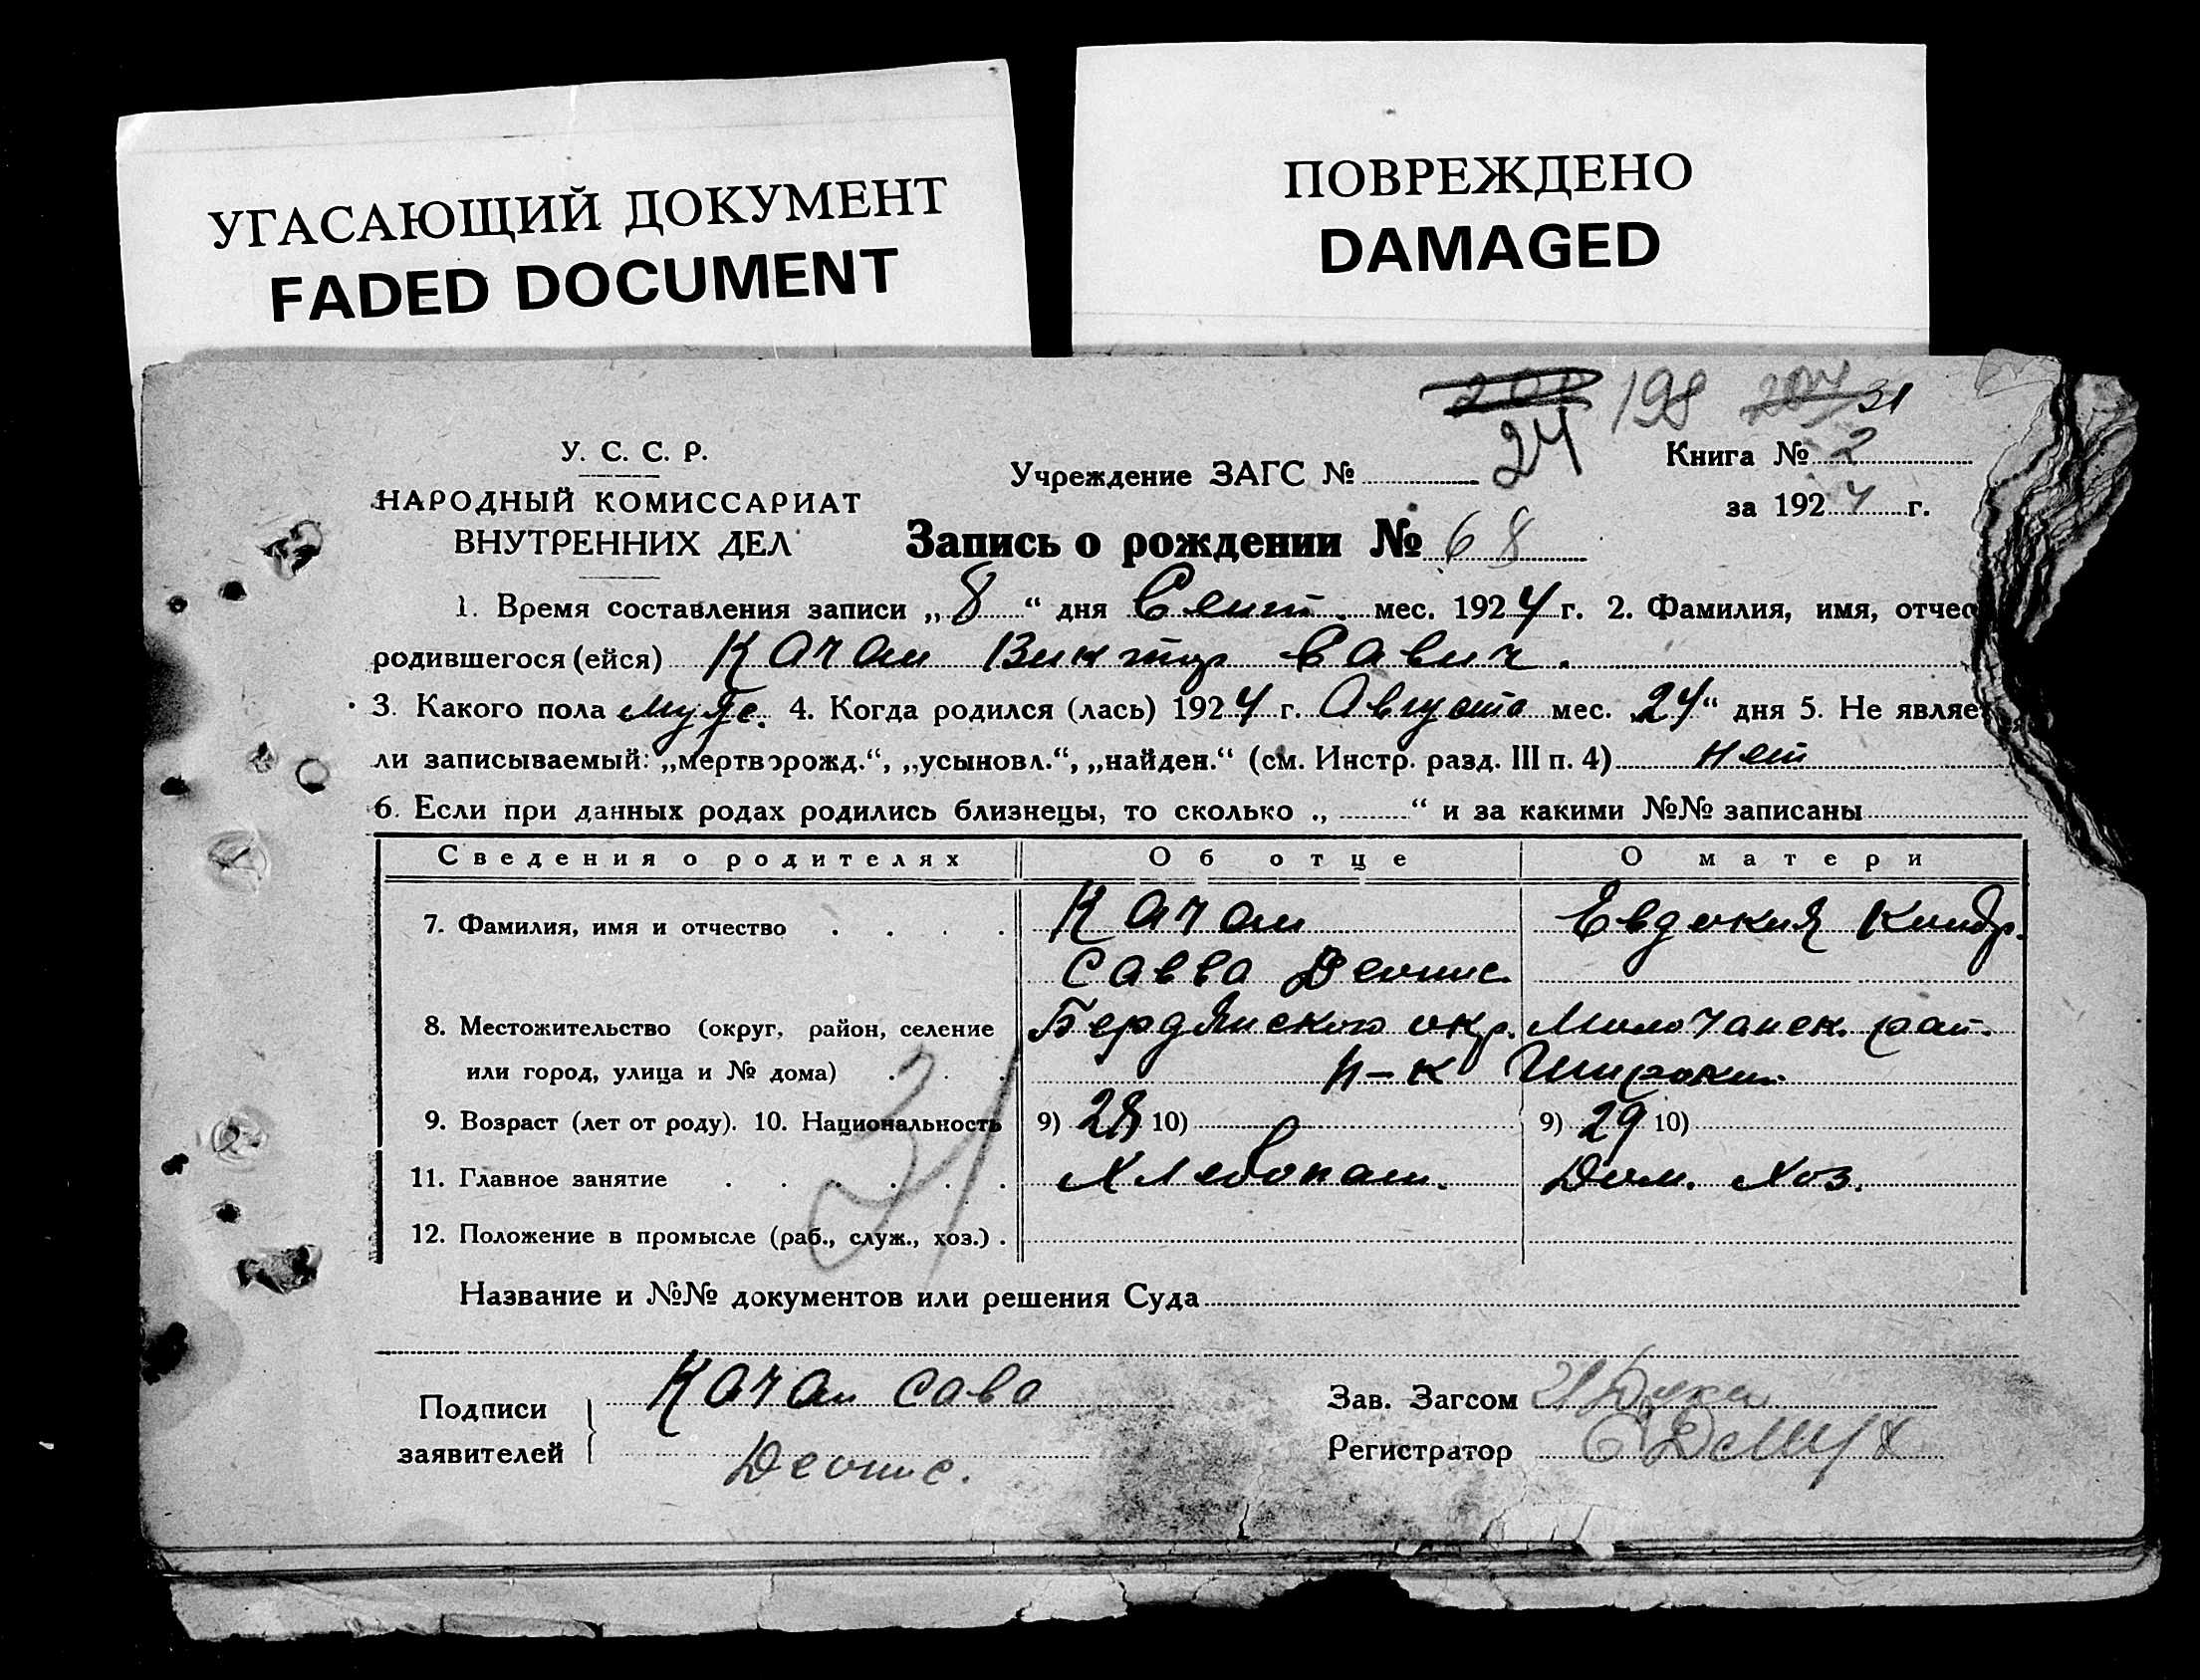 УГАСАЮЩИЙ ДОКУМЕНТ
FADED DOCUMENT
ПОВРЕЖДЕНО
DAMAGED
200 198 204 31
24
У. С. С. Р.
НАРОДНЫЙ КОМИССАРИАТ
ВНУТРЕННИХ ДЕЛ
Учреждение ЗАГС №
Книга № 2
за 1924 г.
Запись о рождении № 68
1. Время составления записи „8“ дня Сент. мес. 1924 г. 2. Фамилия, имя, отчес
родившегося (ейся) Качан Виктор Савич.
3. Какого пола муж. 4. Когда родился (лась) 1924 г. Августа мес. 24“ дня 5. Не являе
ли записываемый: „мертворожд.“, „усыновл.“, „найден.“ (см. Инстр. разд. III п. 4) нет
6. Если при данных родах родились близнецы, то сколько „ “ и за какими №№ записаны
Сведения о родителях Об отце О матери
7. Фамилия, имя и отчество Качан Евдокия Кондр.
Савва Деонис.
8. Местожительство (округ, район, селение Бердянского окр. Молочанск. рай.
или город, улица и № дома) Н-к Широкий
9. Возраст (лет от роду). 10. Национальность 9) 28 10) 9) 29 10)
11. Главное занятие Хлебопаш. Дом. хоз.
12. Положение в промысле (раб., служ., хоз.)
31
Название и №№ документов или решения Суда
Подписи заявителей Качан Сава
Деонис.
Зав. Загсом
Регистратор